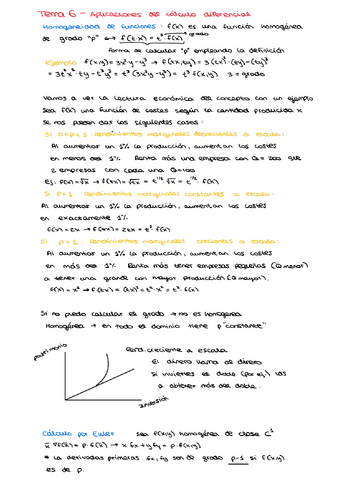 Tema 6 - Aplicaciones del cálculo diferencial
Homogeneidad de funciones : f(x) es una función homogénea
de grado "p" ↔ f(t·x) = t^p·f(x) grado
forma de calcular "p" empleando la definición
ejemplo f(x,y) = 3x²y-y³ → f(tx,ty) = 3(tx)²·(ty)-(ty)³
= 3t²x²·ty-t³y³ = t³(3x²y-y³) = t³ f(x,y) 3 = grado
Vamos a ver la lectura económica del concepto con un ejemplo
Sea f(x) una función de costes según la cantidad producida x
se nos pueden dar los siguientes casos :
Si 0≤p<1 : Rendimientos marginales decrecientes a escala:
Al aumentar un 1% la producción, aumentan los costes
en menos del 1% Renta más una empresa con Q=200 que
2 empresas con cada una Q=100
Ej: f(x)=√x → f(tx)=√tx = t^1/2 √x = t^1/2 · f(x)
Si P=1 : Rendimientos marginales constantes a escala:
Al aumentar un 1% la producción, aumentan los costes
en exactamente 1%
f(x)=2x → f(tx)=2tx = t¹ f(x)
Si p>1 : Rendimientos marginales crecientes a escala:
Al aumentar un 1% la producción, aumentan los costes
en más del 1% Renta más tener empresas pequeñas (Q menor)
a tener una grande con mayor producción (Q mayor).
Si no puedo calcular el grado → no es homogénea
Homogénea → en todo el dominio tiene p "constante"
patrimonio
Rend. creciente a escala
El dinero llama al dinero
si inviertes el doble
a obtener más del doble.
inversión
Cálculo por Euler sea f(x,y) homogénea de clase C¹
* la derivadas primeras fx, fy son de grado p-1 si f(x,y)
es de p.